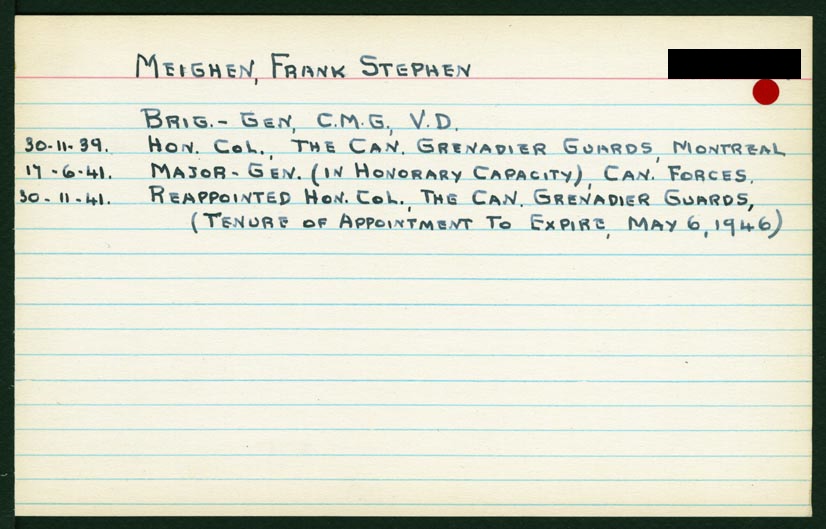 MEIGHEN, FRANK STEPHEN
BRIG.- GEN, C.M.G., V.D.
30-11-39. HON. COL., THE CAN. GRENADIER GUARDS, MONTREAL
17-6-41. MAJOR-GEN. (IN HONORARY CAPACITY), CAN. FORCES.
30-11-41. REAPPOINTED HON. COL., THE CAN. GRENADIER GUARDS,
(TENURE OF APPOINTMENT TO EXPIRE, MAY 6, 1946)